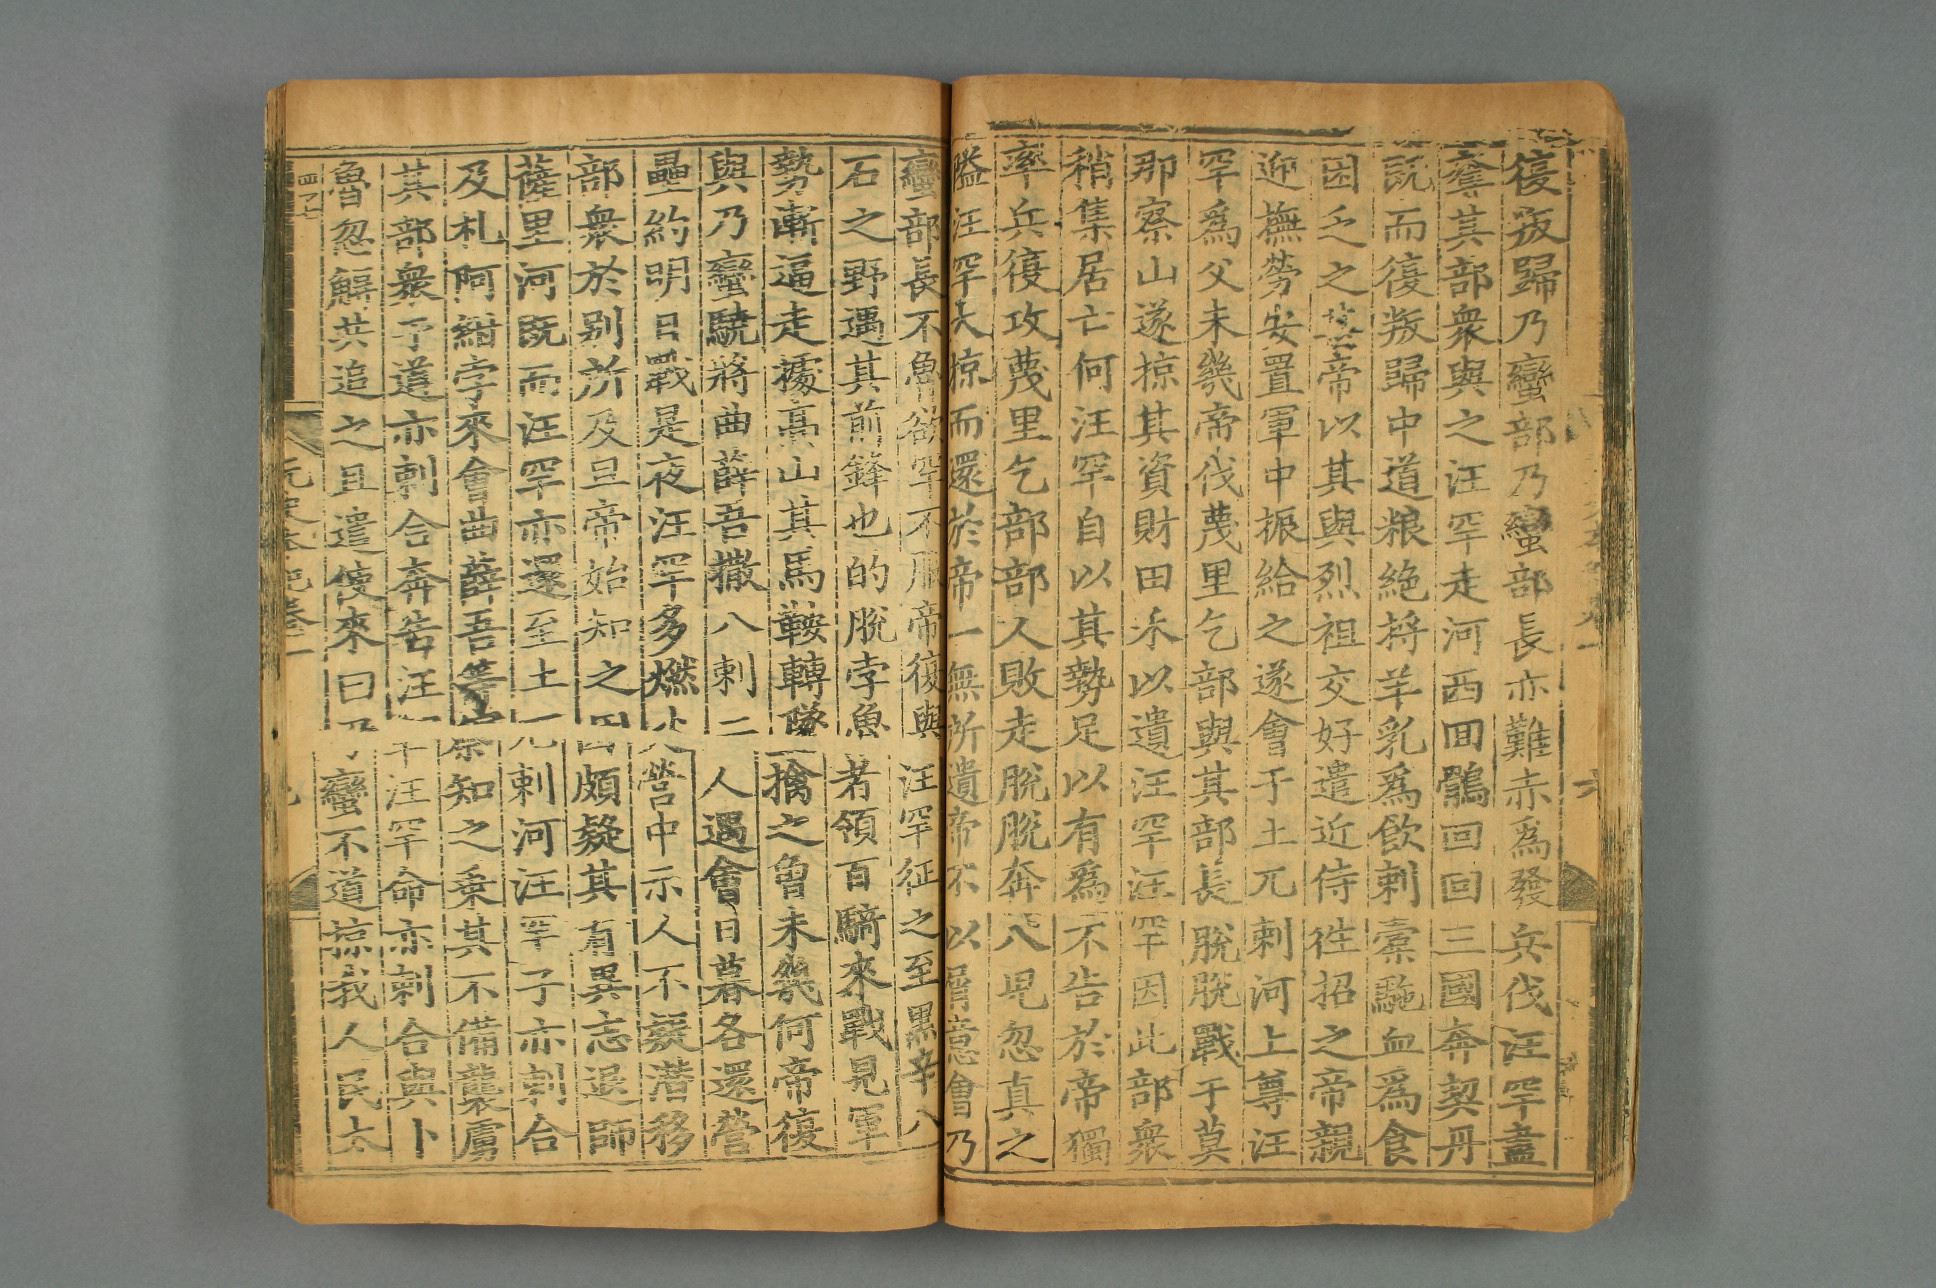 復叛歸乃蠻部乃蠻部長亦難赤爲發兵伐汪罕盡
奪其部衆與之汪罕走河西回鶻回回三國奔契丹
既而復叛歸中道粮絶捋羊乳爲飲刺橐駞血爲食
困乏之甚帝以其與烈祖交好遣近侍徃招之帝親
迎撫勞安置軍中振給之遂會于土兀剌河上尊汪
罕爲父未幾帝伐蔑里乞部與其部長脫脫戰于莫
那察山遂掠其資財田禾以遺汪罕汪罕因此部衆
稍集居亡何汪罕自以其勢足以有爲不告於帝獨
率兵復攻蔑里乞部部人敗走脫脫奔八兒忽真之
隘汪罕大掠而還於帝一無所遺帝不以屑意會乃
蠻部長不魯欲罕不服帝復與汪罕征之至黑辛八
石之野遇其前鋒也的脫孛魯者領百騎來戰見軍
勢漸逼走據高山其馬鞍轉墜擒之曾未幾何帝復
與乃蠻驍將曲薛吾撒八剌二人遇會日暮各還營
壘約明日戰是夜汪罕多燃火營中示人不疑潛移
部衆於别所及旦帝始知之因頗疑其有異志退師
薩里河既而汪罕亦還至土兀剌河汪罕子亦剌合
及札阿紺孛來會曲薛吾等察知之乗其不備襲虜
其部衆于道亦剌合奔告汪罕汪罕命亦剌合與卜
魯忽觧共追之且遣使來曰乃蠻不道掠我人民太
四了七
元史本紀卷一